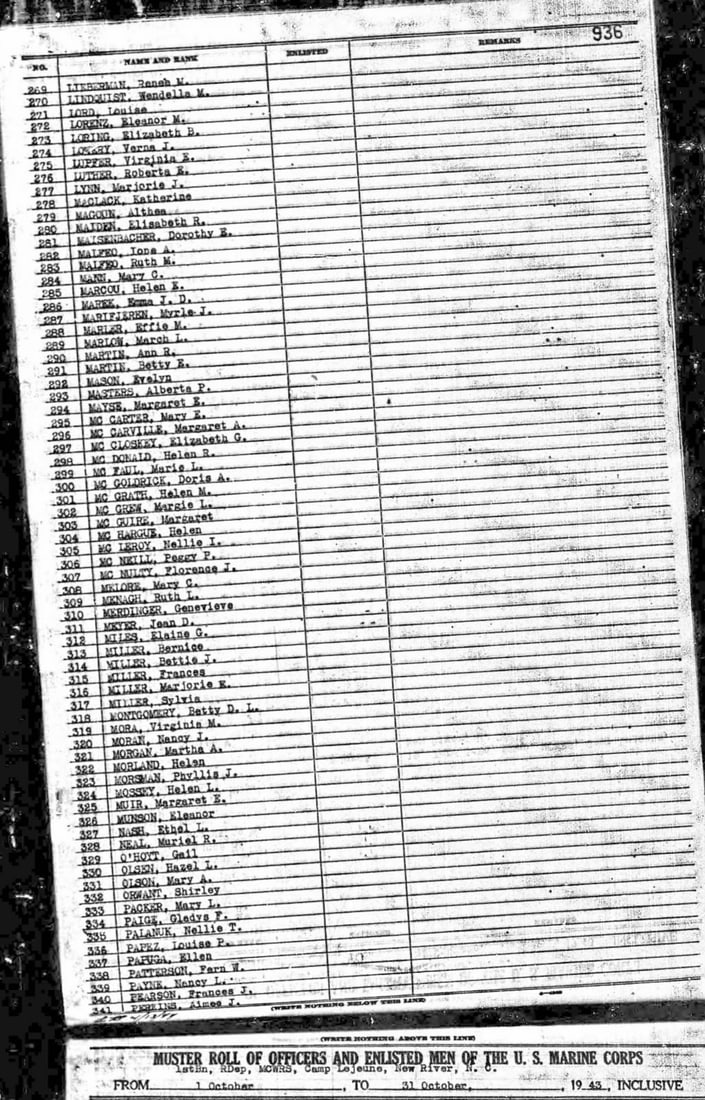 936
NO. NAME AND RANK ENLISTED REMARKS
269 LIEBERMAN, M.
270 LINDQUIST, Wendella M.
271 LORD, Louise
272 LORENZ, Eleanor M.
273 LORING, Elizabeth B.
274 LOWERY, Verna J.
275 LUPFER, Virginia E.
276 LUTHER, Roberta E.
277 LYNN, Marjorie J.
278 MACLACK, Katherine
279 MAGOUN, Althea
280 MAIDEN, Elisabeth R.
281 MAISENBACHER, Dorothy E.
282 MALFEO, Iona A.
283 MALFEO, Ruth M.
284 MANN, Mary C.
285 MARCOU, Helen E.
286 MAREK, Emma J. D.
287 MARIFJEREN, Myrle J.
288 MARLER, Effie M.
289 MARLOW, March L.
290 MARTIN, Ann R.
291 MARTIN, Betty E.
292 MASON, Evelyn
293 MASTERS, Alberta P.
294 MAYSE, Margaret E.
295 MC CARTER, Mary E.
296 MC CARVILLE, Margaret A.
297 MC CLOSKEY, Elizabeth G.
298 MC DONALD, Helen R.
299 MC FAUL, Marie L.
300 MC GOLDRICK, Doris A.
301 MC GRATH, Helen M.
302 MC GREW, Margie L.
303 MC GUIRE, Margaret
304 MC HARGUE, Helen
305 MC LEROY, Nellie I.
306 MC NEILL, Peggy P.
307 MC NULTY, Florence J.
308 MELORE, Mary C.
309 MENAGH, Ruth L.
310 MERDINGER, Genevieve
311 MEYER, Jean D.
312 MILES, Elaine G.
313 MILLER, Bernice
314 MILLER, Bettie J.
315 MILLER, Frances
316 MILLER, Marjorie E.
317 MILLER, Sylvia
318 MONTGOMERY, Betty D. L.
319 MORA, Virginia M.
320 MORAN, Nancy J.
321 MORGAN, Martha A.
322 MORLAND, Helen
323 MORSMAN, Phyllis J.
324 MOSSEY, Helen L.
325 MUIR, Margaret E.
326 MUNSON, Eleanor
327 NASH, Ethel L.
328 NEAL, Muriel R.
329 O'HOYT, Gail
330 OLSEN, Hazel L.
331 OLSON, Mary A.
332 ORWANT, Shirley
333 PACKER, Mary L.
334 PAIGE, Gladys F.
335 PALANUK, Nellie T.
336 PAPEZ, Louise P.
337 PAPUGA, Ellen
338 PATTERSON, Fern W.
339 PAYNE, Nancy L.
340 PEARSON, Frances J.
341 PERKINS, Aimee J.
(WRITE NOTHING BELOW THIS LINE)
(WRITE NOTHING ABOVE THIS LINE)
MUSTER ROLL OF OFFICERS AND ENLISTED MEN OF THE U. S. MARINE CORPS
1stBn, RDep, MCWRS, Camp Lejeune, New River, N. C.
FROM 1 October, TO 31 October, 19 43, INCLUSIVE